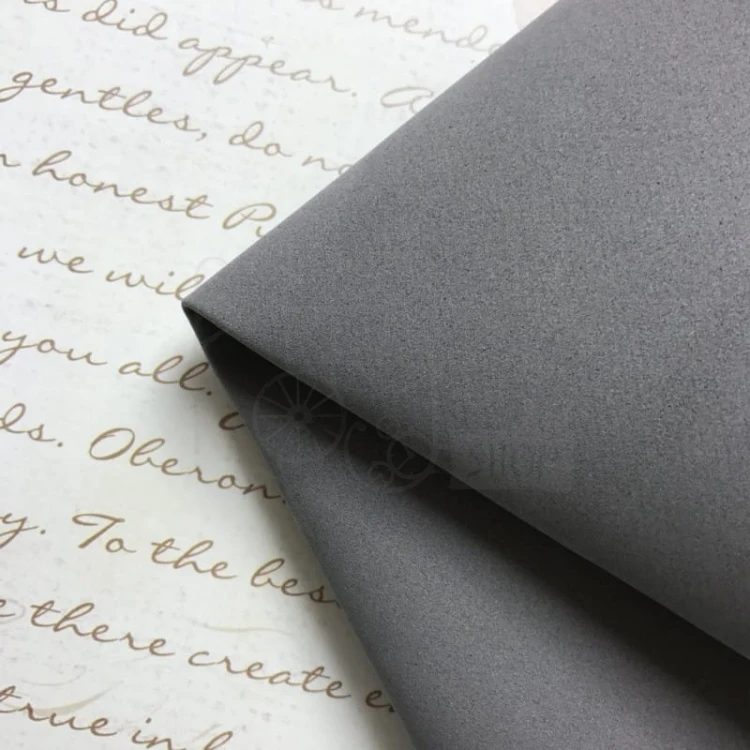 did appear.
mend
gentles, do no
honest Pu
we wil
you all.
ds. Oberon.
y. To the bes
there create e
true in